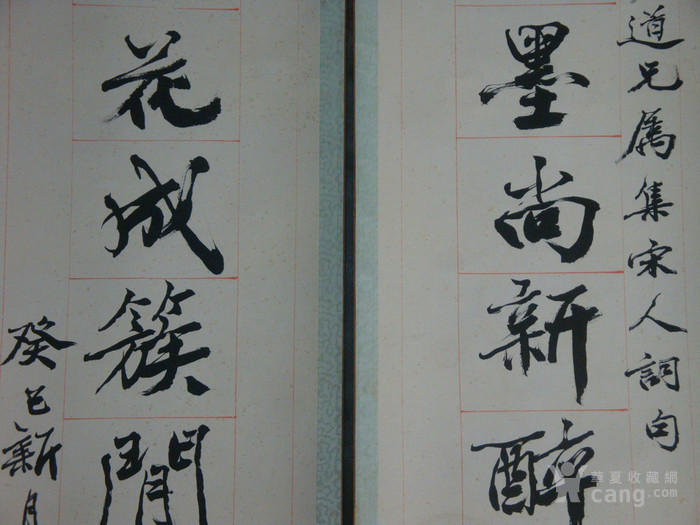 道兄属集宋人詞句
墨尚新醉
花成簇閒
癸巳新月
華夏收藏網
cang.com